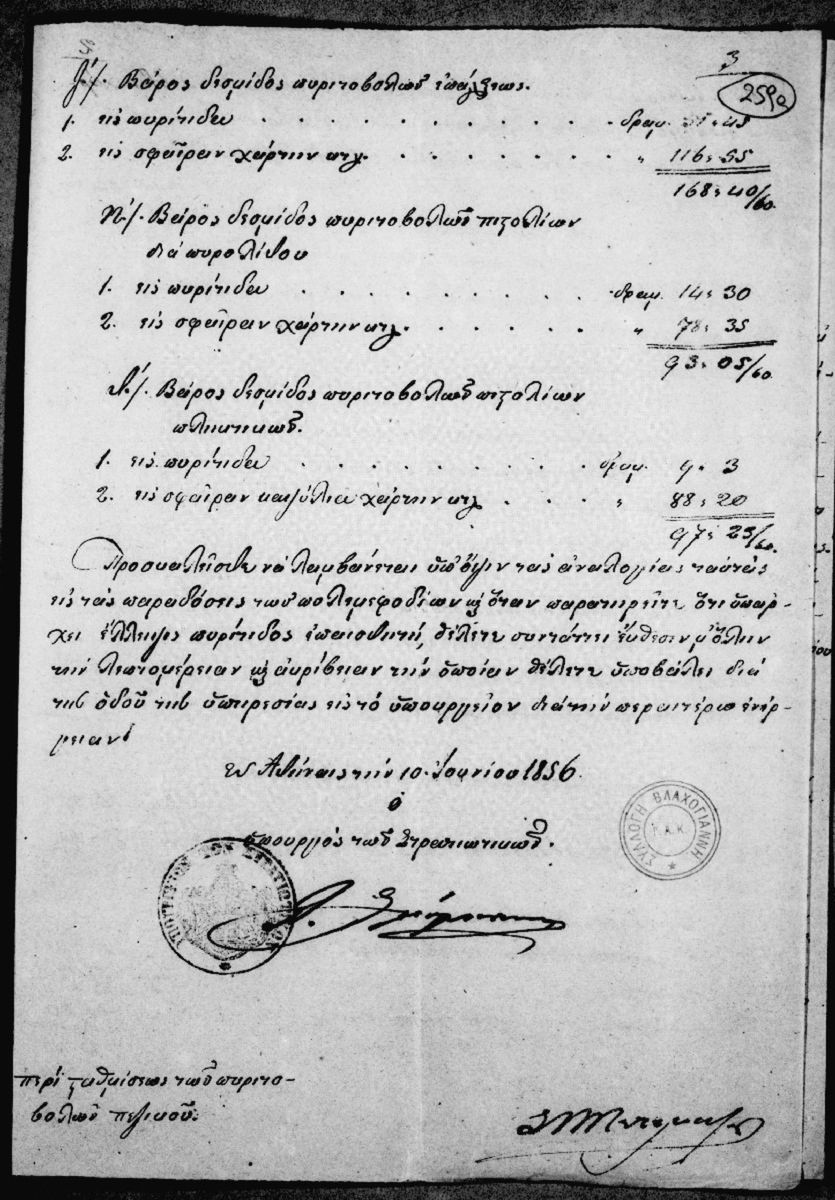 3
259a
ζ´/. Βάρος δεσμίδος πυριτοβολῶν ἐπάλξεως.
1. εἰς πυρίτιδα . . . . . . . . . . δραμ. 51 " 45
2. εἰς σφαῖραν χάρτην κτλ. . . . . . . " 116 " 55
168 " 40/60
η´./. Βάρος δεσμίδος πυριτοβολῶν πιστολίων
διὰ πυρολίθου
1. εἰς πυρίτιδα . . . . . . . . δραμ. 14 " 30
2. εἰς σφαῖραν χάρτην κτλ. . . . . . " 78 " 35
93 " 05/60
Βάρος δεσμίδος πυριτοβολῶν πιστολίων
πληκτικῶν.
1. εἰς πυρίτιδα . . . . . . . δραμ. 9 " 3
2. εἰς σφαῖραν καψύλια χάρτην κτλ . . . " 88 " 20
97 " 23/60.
Προσκαλεῖσθε νὰ λαμβάνεται ὑπ' ὄψιν τὰς ἀναλογίας ταύτας
εἰς τὰς παραδόσεις τῶν πολεμεφοδίων καὶ ὅταν παρατηρεῖτε ὅτι ὑπάρ-
χει ἔλλειψις πυρίτιδος ἐπαισθητή, θέλετε συντάττει ἔκθεσιν μ' ὅλην
τὴν λεπτομέρειαν καὶ ἀκρίβειαν τὴν ὁποίαν θέλετε ὑποβάλει διὰ
τῆς ὁδοῦ τῆς ὑπηρεσίας εἰς τὸ ὑπουργεῖον διὰ τὴν περαιτέρω ἐνέρ-
γειαν.
Ἐν Ἀθήναις τὴν 10 Ἰουνίου 1856.
ὁ
ὑπουργὸς τῶν Στρατιωτικῶν.
ΥΠΟΥΡΓΕΙΟΝ ΤΩΝ ΣΤΡΑΤΙΩΤΙΚΩΝ
ΣΥΛΛΟΓΗ ΒΛΑΧΟΓΙΑΝΝΗ
Γ.Α.Κ.
περὶ σταθμίσεως τῶν πυριτο-
βολῶν πεζικοῦ.